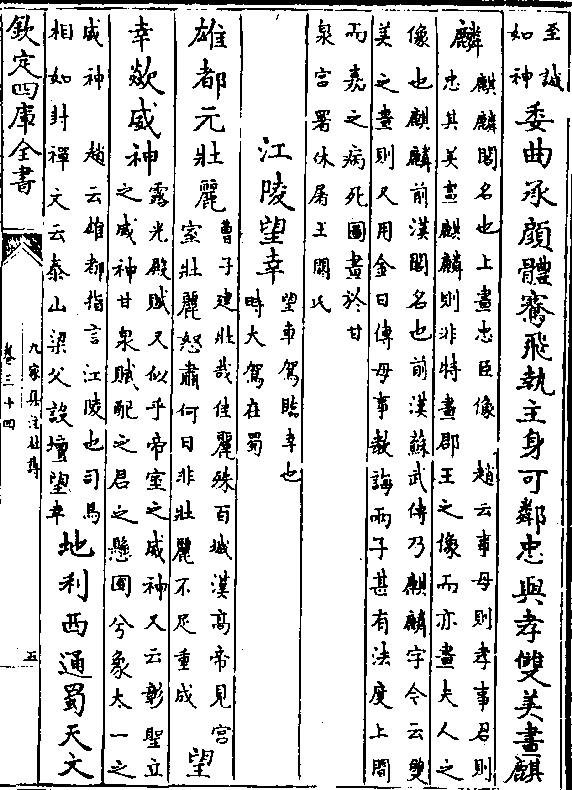 至誠
如神
委曲承顔體騫飛執主身可鄰忠與孝雙美畫麒
麟
麒麟閣名也上畫忠臣像 趙云事母則孝事君則
忠其美畫麒麟則非特畫郡王之像而亦畫夫人之
像也麒麟前漢閣名也前漢蘇武傳乃麒麟字今云雙
美之畫則又用金日傳母事教誨兩子甚有法度上聞
而嘉之病死圖畫於甘
泉宫署休屠王閼氏
江陵望幸
望車駕臨幸也
時大駕在蜀
雄都元壯麗
曹子建壯哉佳麗殊百城漢高帝見宫
室壯麗怒肅何曰非壯麗不足重威
望
幸歘威神
露光殿賦又似乎帝室之威神又云彰聖立
之威神甘泉賦配之君之懸圃兮象太一之
威神 趙云雄都指言江陵也司馬
相如封禪文云泰山梁父設壇望幸
地利西通蜀天文
欽定四庫全書
九家集注杜詩
卷三十四
五